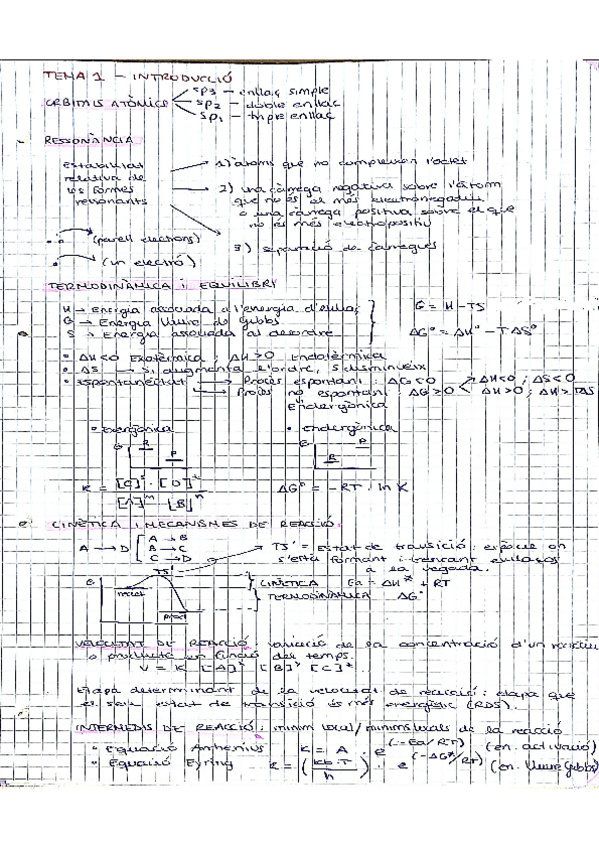 TEMA 1 – INTRODUCCIÓ
ORBITALS ATÒMICS
sp3 – enllaç simple
sp2 – doble enllaç
sp1 – triple enllaç
RESSONÀNCIA
Estabilitat relativa de les formes ressonants
1) àtoms que no compleixen l'octet
2) una càrrega negativa sobre l'àtom
que no és el més electronegatiu
o una càrrega positiva sobre el que
no és més electropositiu
3) separació de càrregues
(parell electrons)
(un electró)
TERMODINÀMICA i EQUILIBRI
H → Energia associada a l'energia d'enllaç
G → Energia lliure de Gibbs
S → Energia associada al desordre
G = H - TS
ΔG° = ΔH° - TΔS°
• ΔH<0 Exotèrmica ; ΔH>0 Endotèrmica
• ΔS → Si augmenta l'ordre, S disminueix
• Espontaneïtat → Procés espontani : ΔG<0 ΔH<0 ; ΔS<0
→ Procés no espontani : ΔG>0 ΔH>0 ; ΔH>TΔS
Endergònica
• exergònica
• endergònica
G R P
G R P
K = [C]^s · [D]^t / [A]^m · [B]^n
ΔG° = -RT · ln K
CINÈTICA i MECANISMES DE REACCIÓ:
A → D
A → B
B → C
C → D
TS' = Estat de transició : espècie on
s'està formant i trencant enllaços
a la vegada.
TS'
E
react
prod
CINÈTICA Ea = ΔH* + RT
TERMODINÀMICA ΔG°
VELOCITAT DE REACCIÓ : variació de la concentració d'un reactiu
o producte en funció del temps.
V = K [A]^x [B]^y [C]^z
Etapa determinant de la velocitat de reacció : etapa que
el seu estat de transició és més energètic (RDS).
INTERMEDIS DE REACCIÓ : mínim local/mínims locals de la reacció
• Equació Arrhenius K = A · e^(-Ea/RT) (en. activació)
• Equació Eyring K = (kb·T / h) · e^(-ΔG*/RT) (en. lliure Gibbs)